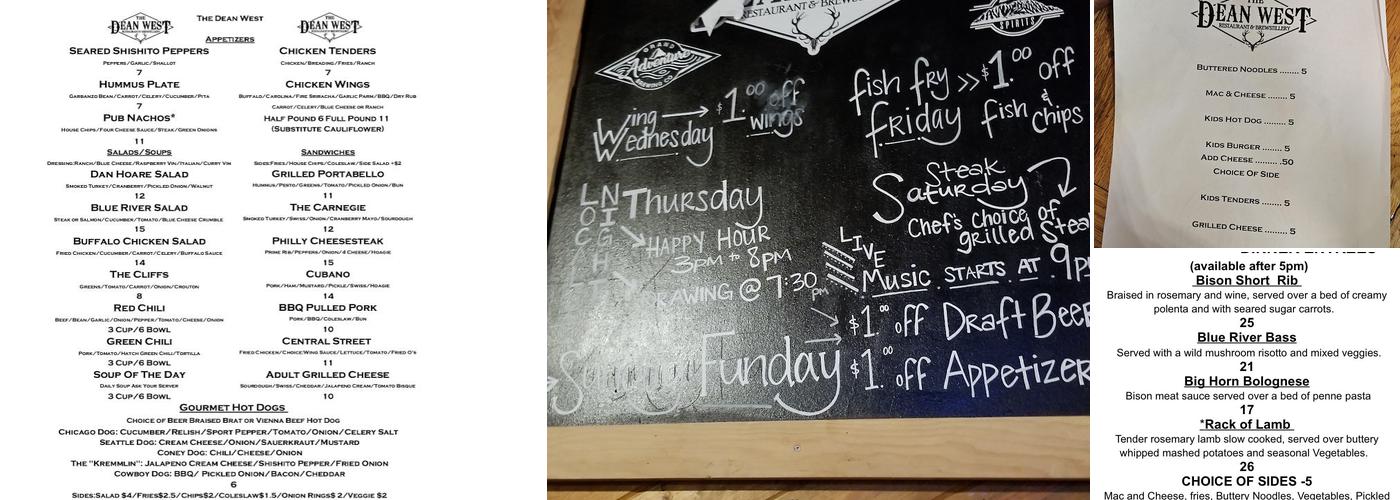 THE
DEAN WEST
The Dean West
THE
DEAN WEST
Appetizers
Seared Shishito Peppers
Peppers/Garlic/Shallot
7
Hummus Plate
Garbanzo Bean/Carrot/Celery/Cucumber/Pita
7
Pub Nachos*
House Chips/Four Cheese Sauce/Steak/Green Onions
11
Salads/Soups
Dressing:Ranch/Blue Cheese/Raspberry Vin/Italian/Curry Vin
Dan Hoare Salad
Smoked Turkey/Cranberry/Pickled Onion/Walnut
12
Blue River Salad
Steak or Salmon/Cucumber/Tomato/Blue Cheese Crumble
15
Buffalo Chicken Salad
Fried Chicken/Cucumber/Carrot/Celery/Buffalo Sauce
14
The Cliffs
Greens/Tomato/Carrot/Onion/Crouton
8
Red Chili
Beef/Bean/Garlic/Onion/Pepper/Tomato/Cheese/Onion
3 Cup/6 Bowl
Green Chili
Pork/Tomato/Hatch Green Chili/Tortilla
3 Cup/6 Bowl
Soup Of The Day
Daily Soup Ask Your Server
3 Cup/6 Bowl
Chicken Tenders
Chicken/Breading/Fries/Ranch
7
Chicken Wings
Buffalo/Carolina/Fire Sriracha/Garlic Parm/BBQ/Dry Rub
Carrot/Celery/Blue Cheese or Ranch
Half Pound 6 Full Pound 11
(Substitute Cauliflower)
Sandwiches
Sides:Fries/House Chips/Coleslaw/Side Salad +$2
Grilled Portabello
Hummus/Pesto/Greens/Tomato/Pickled Onion/Bun
11
The Carnegie
Smoked Turkey/Swiss/Onion/Cranberry Mayo/Sourdough
12
Philly Cheesesteak
Prime Rib/Peppers/Onion/4 Cheese/Hoagie
15
Cubano
Pork/Ham/Mustard/Pickle/Swiss/Hoagie
14
BBQ Pulled Pork
Pork/BBQ/Coleslaw/Bun
10
Central Street
Fried Chicken/Choice Wing Sauce/Lettuce/Tomato/Fried O's
11
Adult Grilled Cheese
Sourdough/Swiss/Cheddar/Jalapeno Cream/Tomato Bisque
10
Gourmet Hot Dogs
Choice of Beer Braised Brat or Vienna Beef Hot Dog
Chicago Dog: Cucumber/Relish/Sport Pepper/Tomato/Onion/Celery Salt
Seattle Dog: Cream Cheese/Onion/Sauerkraut/Mustard
Coney Dog: Chili/Cheese/Onion
The "Kremmlin": Jalapeno Cream Cheese/Shishito Pepper/Fried Onion
Cowboy Dog: BBQ/ Pickled Onion/Bacon/Cheddar
6
Sides:Salad $4/Fries$2.5/Chips$2/Coleslaw$1.5/Onion Rings$ 2/Veggie $2
RESTAURANT & BREWSTILLERY
GRAND
Adventure
BREWING CO.
SPIRITS
Wing
Wednesday
$1.00 off
wings
fish fry >> $1.00 off
friday fish &
chips
Steak
Saturday
Chef's choice of
grilled Steak
LOCALS
NIGHT
Thursday
HAPPY HOUR
3PM to 8PM
DRAWING @ 7:30 PM
LIVE
Music STARTS AT 9p
Sunday Funday
$1.00 off Draft Beer
$1.00 off Appetizer
THE
DEAN WEST
RESTAURANT & BREWSTILLERY
Buttered Noodles ........ 5
Mac & Cheese ......... 5
Kids Hot Dog ......... 5
Kids Burger ........ 5
Add Cheese ......... .50
Choice Of Side
Kids Tenders ........ 5
Grilled Cheese ...... 5
DINNER ENTREES
(available after 5pm)
Bison Short Rib
Braised in rosemary and wine, served over a bed of creamy
polenta and with seared sugar carrots.
25
Blue River Bass
Served with a wild mushroom risotto and mixed veggies.
21
Big Horn Bolognese
Bison meat sauce served over a bed of penne pasta
17
*Rack of Lamb
Tender rosemary lamb slow cooked, served over buttery
whipped mashed potatoes and seasonal Vegetables.
26
CHOICE OF SIDES -5
Mac and Cheese, fries, Buttery Noodles, Vegetables, Pickled